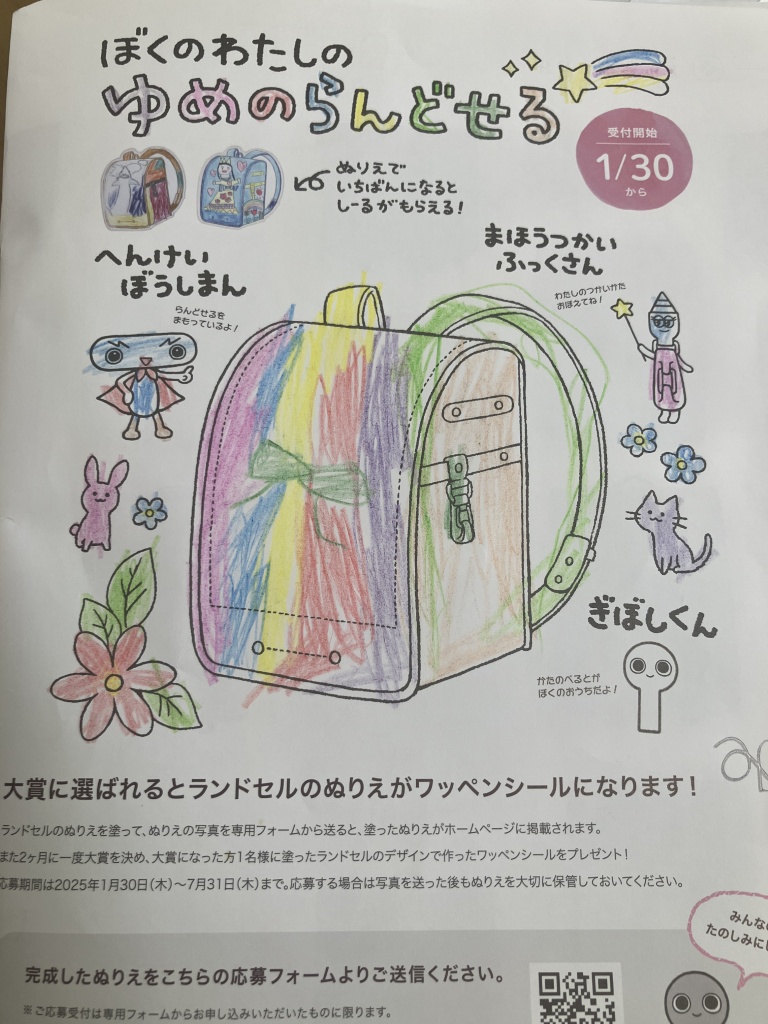 ぼくのわたしの
ゆめのらんどせる
受付開始
1/30
から
ぬりえで
いちばんになると
しーるがもらえる!
へんけい
ぼうしまん
らんどせるを
まもっているよ!
まほうつかい
ふっくさん
わたしのつかいかた
おぼえてね!
ぎぼしくん
かたのべるとが
ぼくのおうちだよ!
大賞に選ばれるとランドセルのぬりえがワッペンシールになります!
ランドセルのぬりえを塗って、ぬりえの写真を専用フォームから送ると、塗ったぬりえがホームページに掲載されます。
また2ヶ月に一度大賞を決め、大賞になった方1名様に塗ったランドセルのデザインで作ったワッペンシールをプレゼント!
応募期間は2025年1月30日(木)〜7月31日(木)まで。応募する場合は写真を送った後もぬりえを大切に保管しておいてください。
みんなの
たのしみに
完成したぬりえをこちらの応募フォームよりご送信ください。
※ご応募受付は専用フォームからお申し込みいただいたものに限ります。